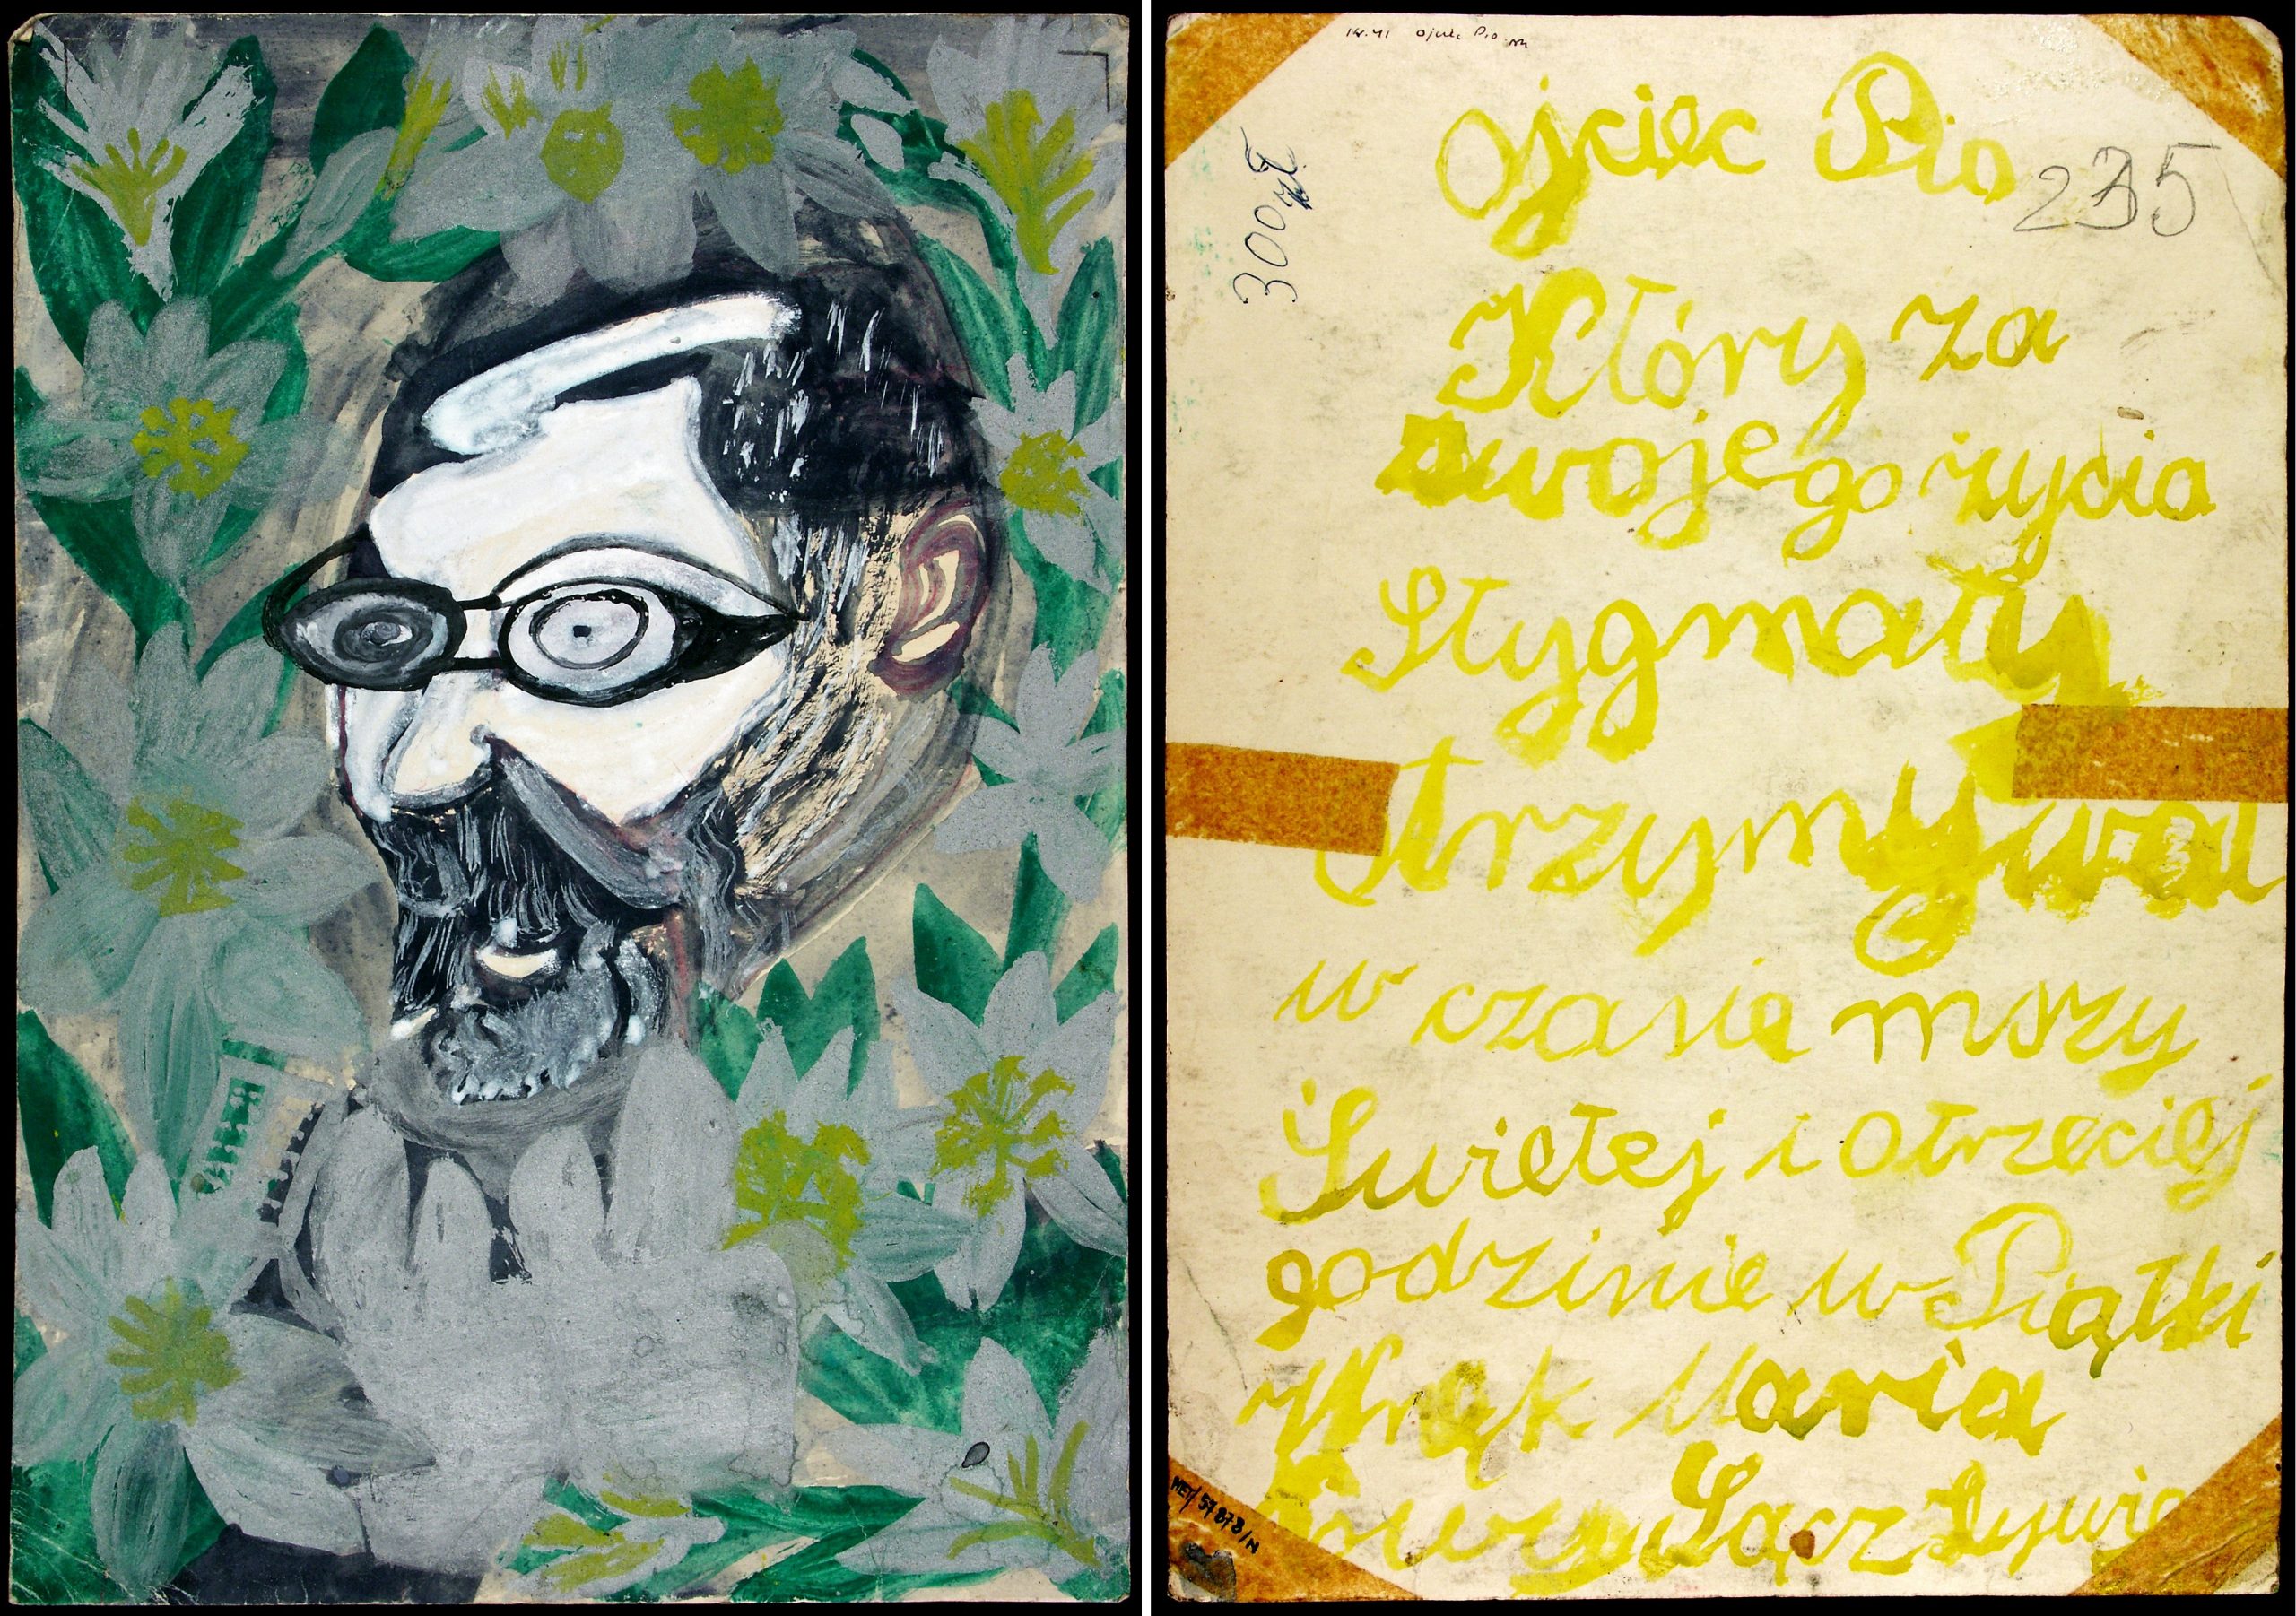 Ojciec Pio
235
300 zł
Który za
swojego życia
Stygmaty
otrzymywał
w czasie mszy
Świętej i o trzeciej
godzinie w Piątki
Wnęk Maria
Nowy Sącz
MET/57878/N